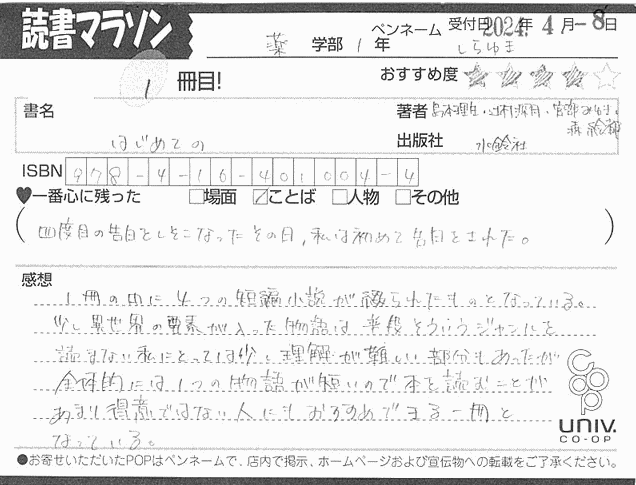 読書マラソン
薬 学部 1 年
ペンネーム しらゆき
受付日 2024年 4月-8日
1 冊目!
おすすめ度 ★★★★☆
書名 はじめての
著者 島本理生・辻村深月・宮部みゆき・森絵都
出版社 水鈴社
ISBN 978-4-16-401004-4
♥一番心に残った □場面 ☑ことば □人物 □その他
(四度目の告白をしそこなったその日、私は初めて告白をされた。)
感想
1冊の中に4つの短編小説が綴られたものとなっている。
少し異世界の要素が入った物語は普段そういうジャンルを
読まない私にとっては少し理解が難しい部分もあったが
全体的には1つの物語が短いので本を読むことが
あまり得意ではない人にもおすすめできる一冊と
なっている。
coop
UNIV.
CO-OP
●お寄せいただいたPOPはペンネームで、店内で掲示、ホームページおよび宣伝物への転載をご了承ください。